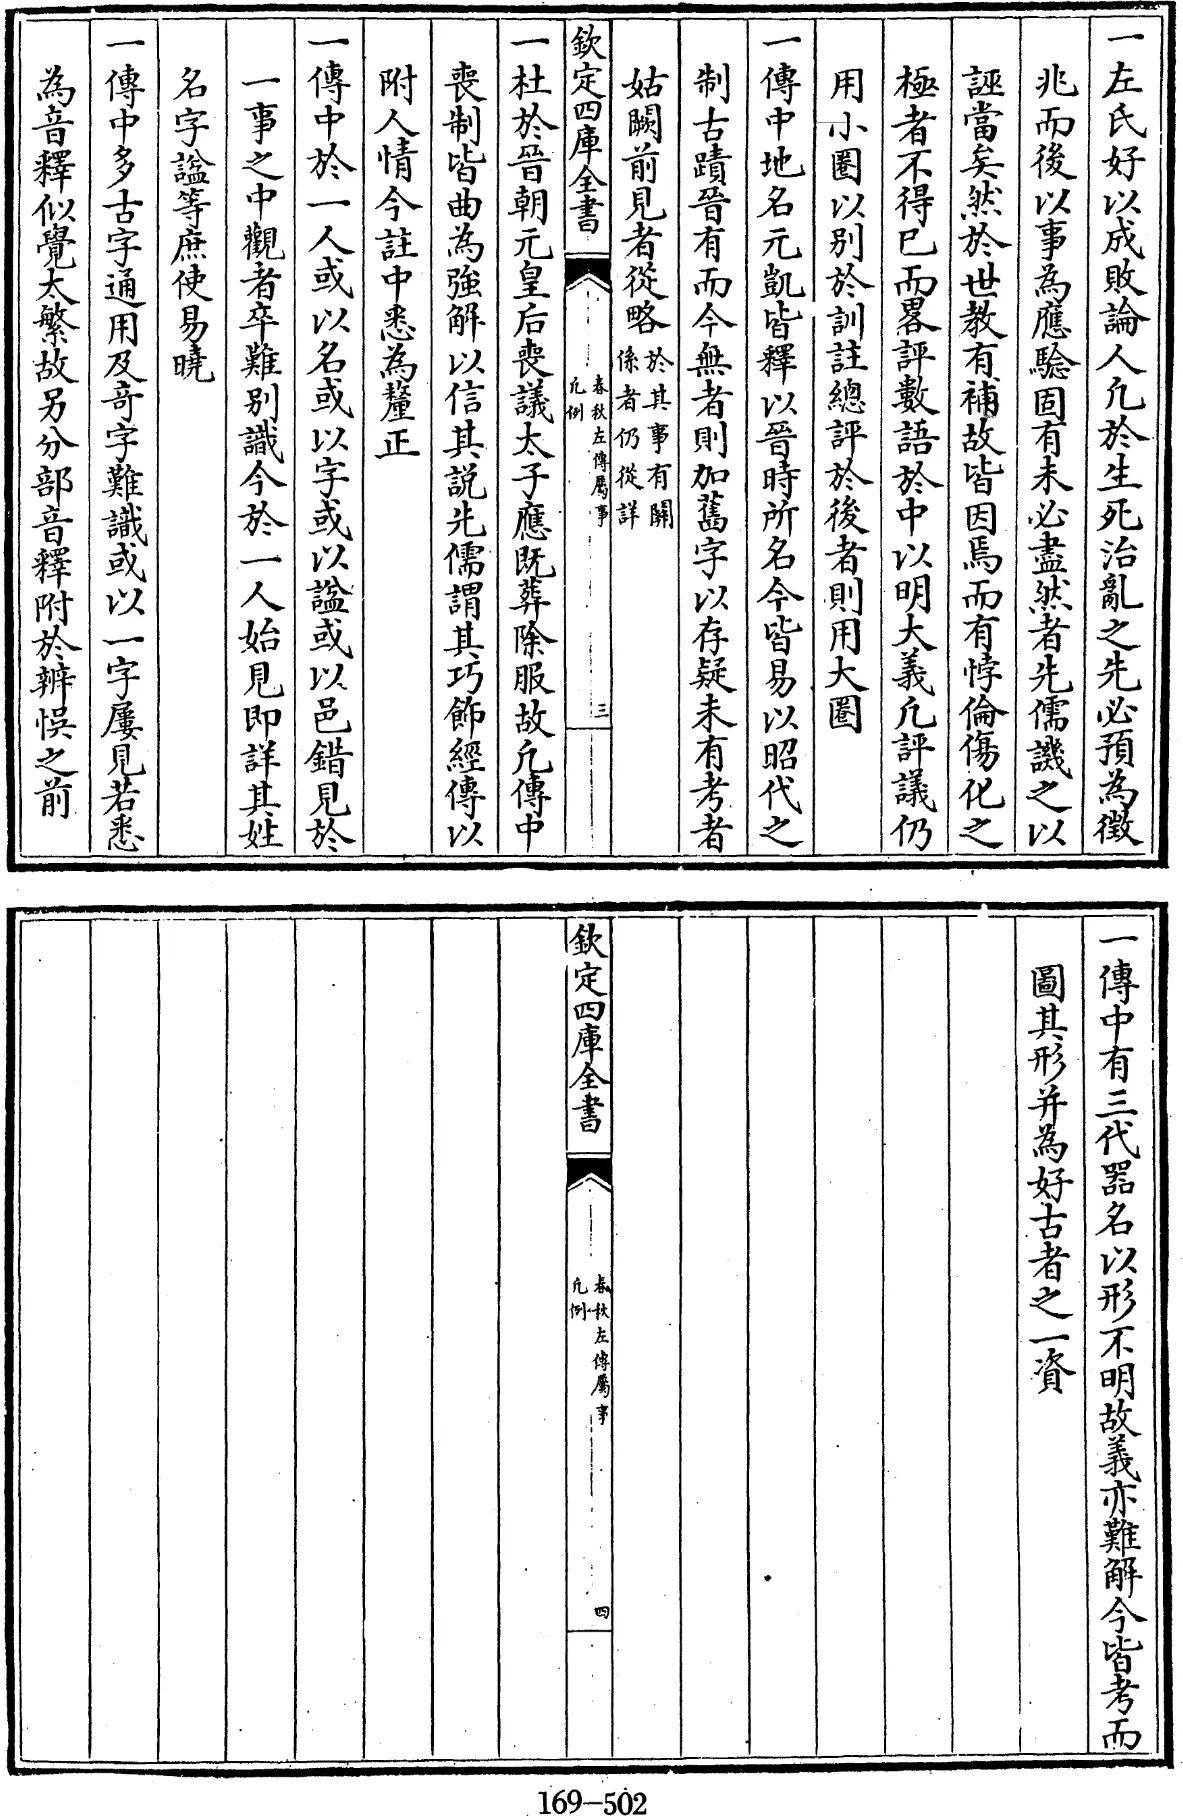 一左氏好以成敗論人凢於生死治亂之先必預為徵
兆而後以事為應驗固有未必盡然者先儒譏之以
誣當矣然於世教有補故皆因焉而有悖倫傷化之
極者不得已而畧評數語於中以明大義凢評議仍
用小圏以别於訓註總評於後者則用大圏
一傳中地名元凱皆釋以晉時所名今皆易以昭代之
制古蹟晉有而今無者則加舊字以存疑未有考者
姑闕前見者從略於其事有關
係者仍從詳
欽定四庫全書
春秋左傳屬事
凢例
三
一杜於晉朝元皇后喪議太子應既葬除服故凢傳中
喪制皆曲為強解以信其説先儒謂其巧飾經傳以
附人情今註中悉為釐正
一傳中於一人或以名或以字或以謚或以邑錯見於
一事之中觀者卒難别識今於一人始見即詳其姓
名字謚等庶使易曉
一傳中多古字通用及竒字難識或以一字屢見若悉
為音釋似覺太繁故另分部音釋附於辨悮之前
一傳中有三代器名以形不明故義亦難解今皆考而
圖其形并為好古者之一資
欽定四庫全書
春秋左傳屬事
凢例
四
169-502